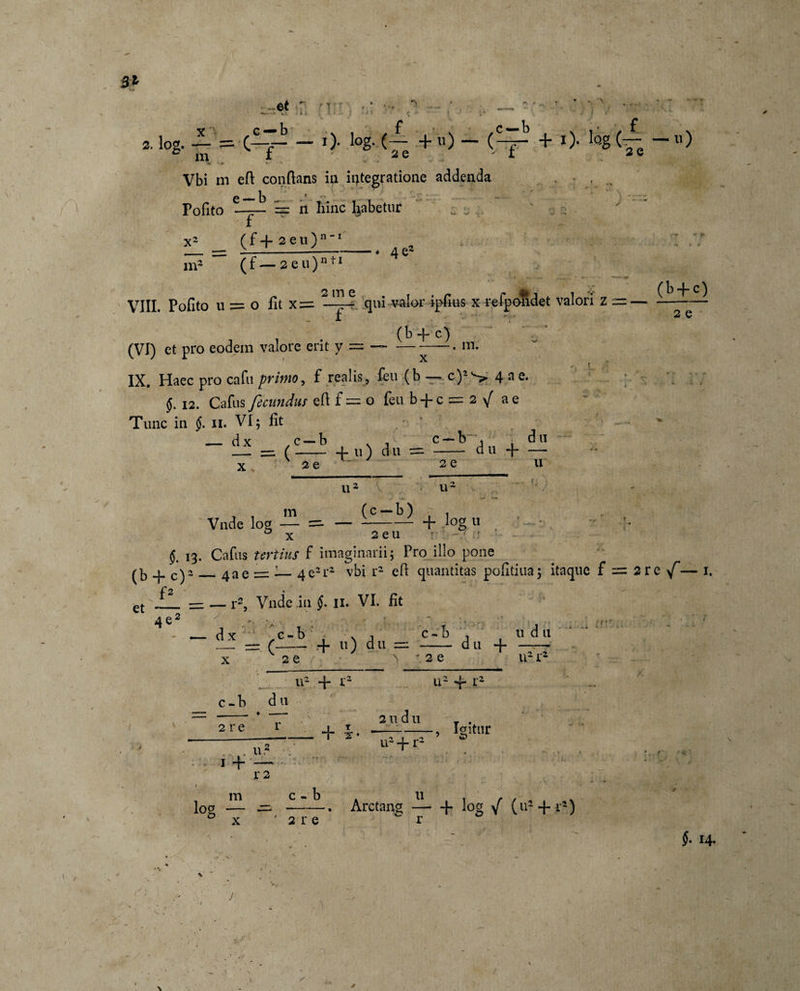 32
et
2. log. x/m = ((c—b)/f — 1). log. (f/2e + u) — ((c—b)/f + 1). log (f/2e — u)
Vbi m eſt conſtans in integratione addenda
Poſito (c—b)/f = n hinc habetur
x²/m² = (f + 2eu)ⁿ⁻¹/(f — 2eu)ⁿ⁺¹ . 4e²
VIII. Poſito u = o fit x = 2me/f qui valor ipſius x reſpondet valori z = — (b+c)/2e
(VI) et pro eodem valore erit y = — (b+c)/x . m.
IX. Haec pro caſu primo, f realis, ſeu (b — c)² > 4ae.
§. 12. Caſus ſecundus eſt f = o ſeu b + c = 2 √ ae
Tunc in §. 11. VI; fit
— dx/x = ((c—b)/2e + u) du / u² = (c—b)/2e du / u² + du/u
Vnde log m/x = — (c—b)/2eu + log u
§. 13. Caſus tertius f imaginarii; Pro illo pone
(b + c)² — 4ae = — 4e²r² vbi r² eſt quantitas poſitiua; itaque f = 2re √— 1.
et f²/4e² = — r², Vnde in §. 11. VI. fit
— dx/x = ((c-b)/2e + u) du / (u² + r²) = (c-b)/2e du / (u² + r²) + u du / u² r²
= (c-b)/2re . du/r / (1 + u²/r²) + ½. 2udu/(u² + r²), Igitur
log m/x = (c-b)/2re. Arctang u/r + log √ (u² + r²)
§. 14.